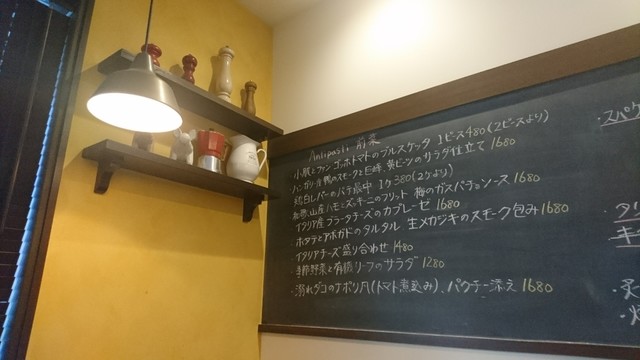 Antipasti 前菜
小鰕とファンゴッホトマトのブルスケッタ 1ピース480(2ピースより)
ハンガリー鴨のスモークと巨峰、黄ビーツのサラダ仕立て 1680
白レバーのパテ最中 1ケ380(2ケより)
和歌山産ハモとズッキーニのフリット 梅のガスパチョソース 1680
イタリア産ブラータチーズのカプレーゼ 1680
ホタテとアボガドのタルタル 生メカジキのスモーク包み 1680
イタリアチーズ盛り合わせ 1480
季節野菜と有機リーフのサラダ 1280
・溺れダコのナポリ風(トマト煮込み)、パクチー添え 1680
・スパゲ